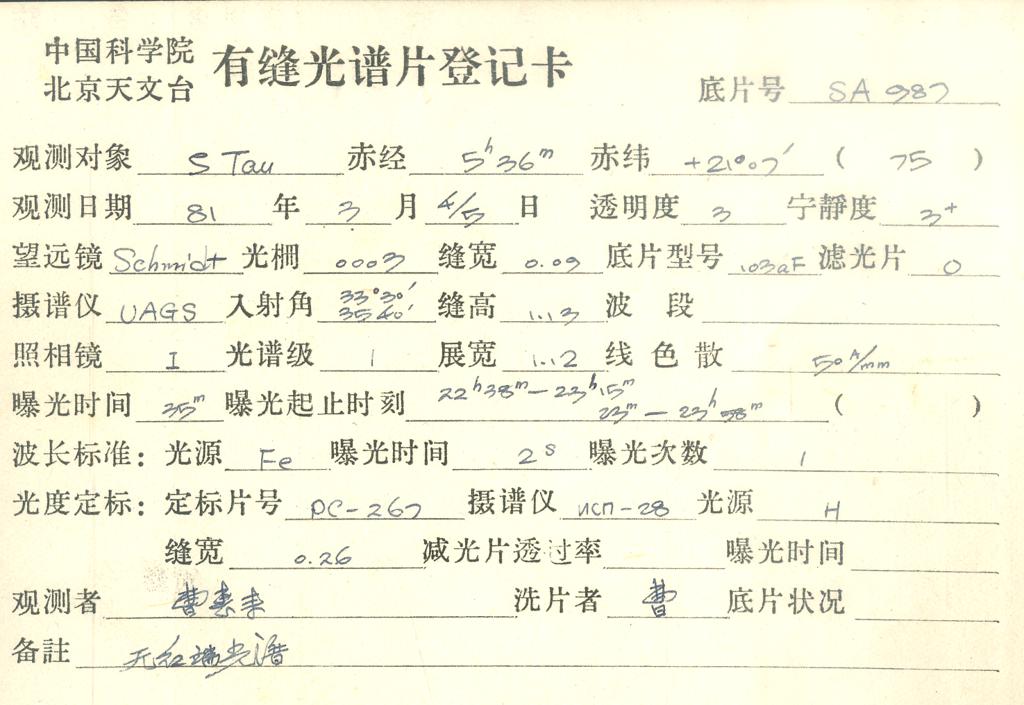 中国科学院
北京天文台
有缝光谱片登记卡
底片号 SA 987
观测对象 S Tau 赤经 5h36m 赤纬 +21°07′ ( 75 )
观测日期 81 年 3 月 4/5 日 透明度 3 宁静度 3+
望远镜 Schmidt 光栅 0003 缝宽 0.09 底片型号 103aF 滤光片 0
摄谱仪 UAGS 入射角 33°30′ 35°40′ 缝高 1..3 波段
照相镜 I 光谱级 1 展宽 1..2 线色散 50A/mm
曝光时间 35m 曝光起止时刻 22h38m—23h15m
23m—23h58m ( )
波长标准: 光源 Fe 曝光时间 2s 曝光次数 1
光度定标: 定标片号 PC-267 摄谱仪 ИСП-28 光源 H
缝宽 0.26 减光片透过率 曝光时间
观测者 曹惠来 洗片者 曹 底片状况
备註 无红端光谱